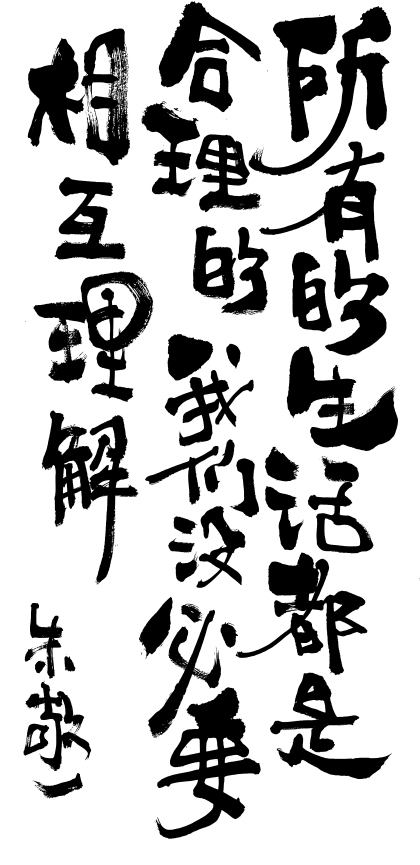 所有的生活都是
合理的我们没必要
相互理解
朱敬一